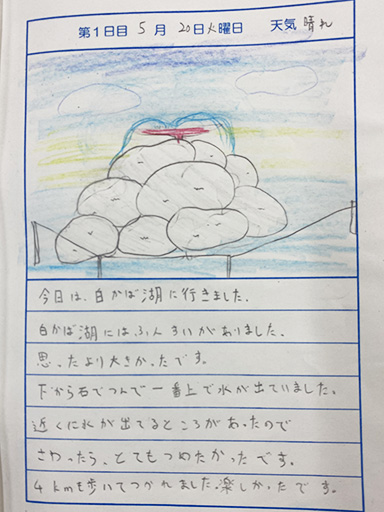 第1日目 5月 20日火曜日 天気 晴れ
今日は、白かば湖に行きました。
白かば湖にはふんすいがありました。
思ったより大きかったです。
下から石でつんで一番上で水が出ていました。
近くに水が出てるところがあったので
さわったら、とてもつめたかったです。
4kmを歩いてつかれました。楽しかったです。